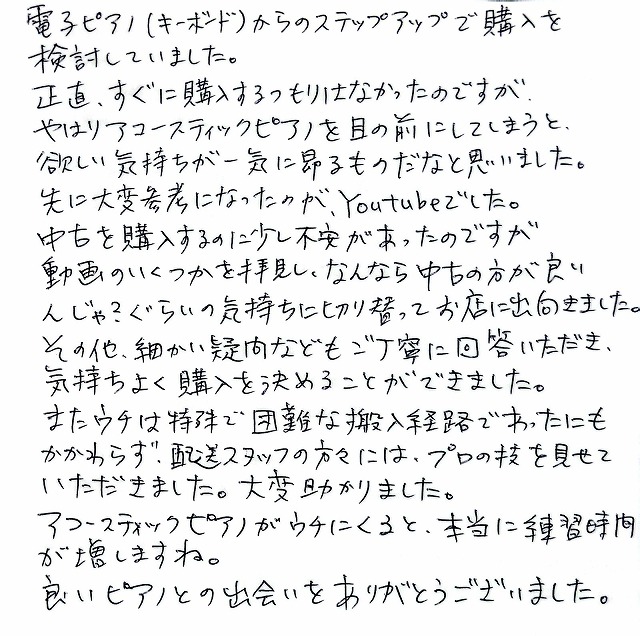 電子ピアノ(キーボード)からのステップアップで購入を
検討していました。
正直、すぐに購入するつもりはなかったのですが、
やはりアコースティックピアノを目の前にしてしまうと、
欲しい気持ちが一気に昂るものだなと思いました。
先に大変参考になったのが、Youtubeでした。
中古を購入するのに少し不安があったのですが
動画のいくつかを拝見し、なんなら中古の方が良い
んじゃ？ぐらいの気持ちに切り替ってお店に出向きました。
その他、細かい疑問などもご丁寧に回答いただき、
気持ちよく購入を決めることができました。
またウチは特殊で困難な搬入経路であったにも
かかわらず、配送スタッフの方々には、プロの技を見せて
いただきました。大変助かりました。
アコースティックピアノがウチにくると、本当に練習時間
が増しますね。
良いピアノとの出会いをありがとうございました。